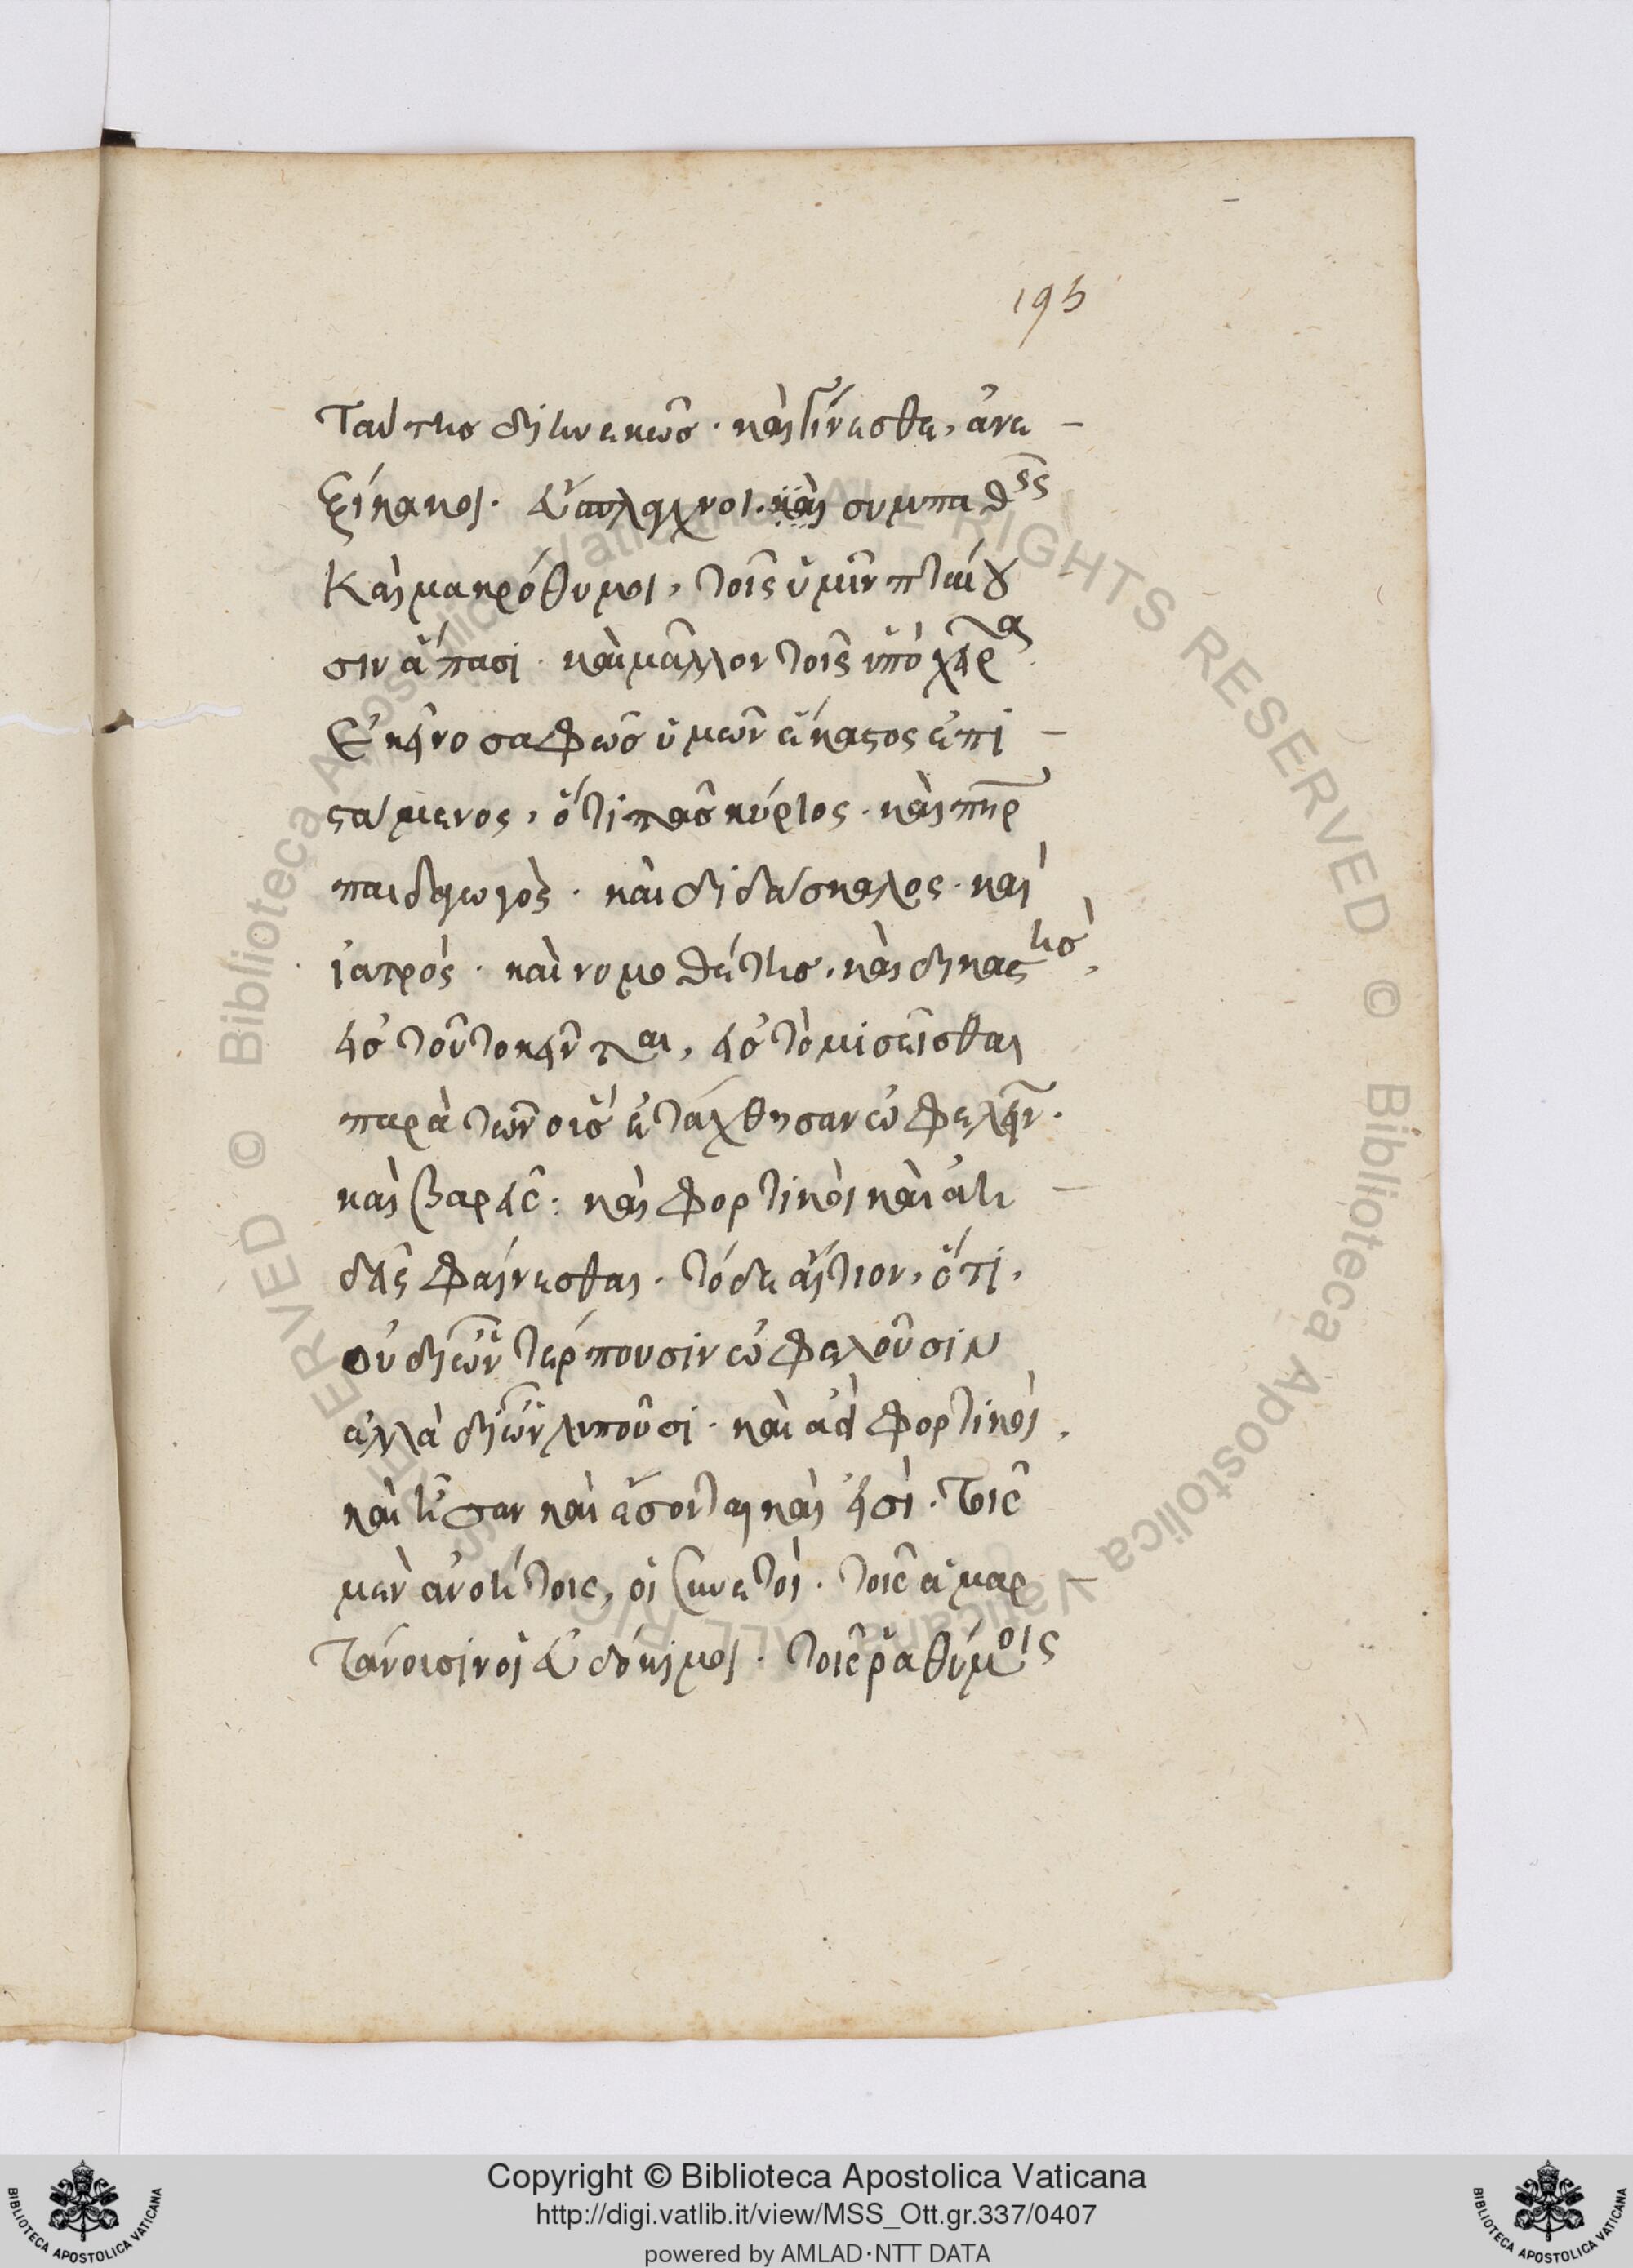 195
Ταύτης διηνεκῶς· καὶ γίνεσθε, ἀνε –
ξίκακοι. εὔσπλαγχνοι. καὶ συμπαθεῖς
Καὶ μακρόθυμοι, τοῖς ὑμῖν πταίου
σιν ἅπασι· καὶ μᾶλλον τοῖς ὑπὸ χεῖρα.
Ἐκεῖνο σαφῶς ὑμῶν ἕκαστος ἐπι –
στάμενος, ὅτι πᾶς κύριος. καὶ πηρ
παιδαγωγὸς. καὶ διδάσκαλος. καὶ
ἰατρός. καὶ νομοθέτης. καὶ δικαστὴς,
εἰς τοῦτο κεῖνται, εἰς τὸ μισεῖσθαι
παρὰ τῶν οἷς ἐτάχθησαν ὠφελεῖν.
καὶ βαρεῖς: καὶ φορτικοὶ καὶ ἀη –
δεῖς φαίνεσθαι. τὸ δε αἴτιον, ὅτι,
οὐ δι ὧν τέρπουσιν ὠφελοῦσιν
ἀλλὰ δι ὧν λυποῦσι. καὶ ἀεὶ φορτικοὶ,
καὶ ἦσαν καὶ ἔσονται καὶ εἰσὶ. τοῖς
μὲν ἀνοήτοις, οἱ συνετοί. τοῖς ἁμαρ –
τάνουσιν οἱ εὐδόκιμοι. τοῖς ῥαθύμοις
Copyright © Biblioteca Apostolica Vaticana
http://digi.vatlib.it/view/MSS_Ott.gr.337/0407
powered by AMLAD·NTT DATA
BIBLIOTECA APOSTOLICA VATICANA
BIBLIOTECA APOSTOLICA VATICANA